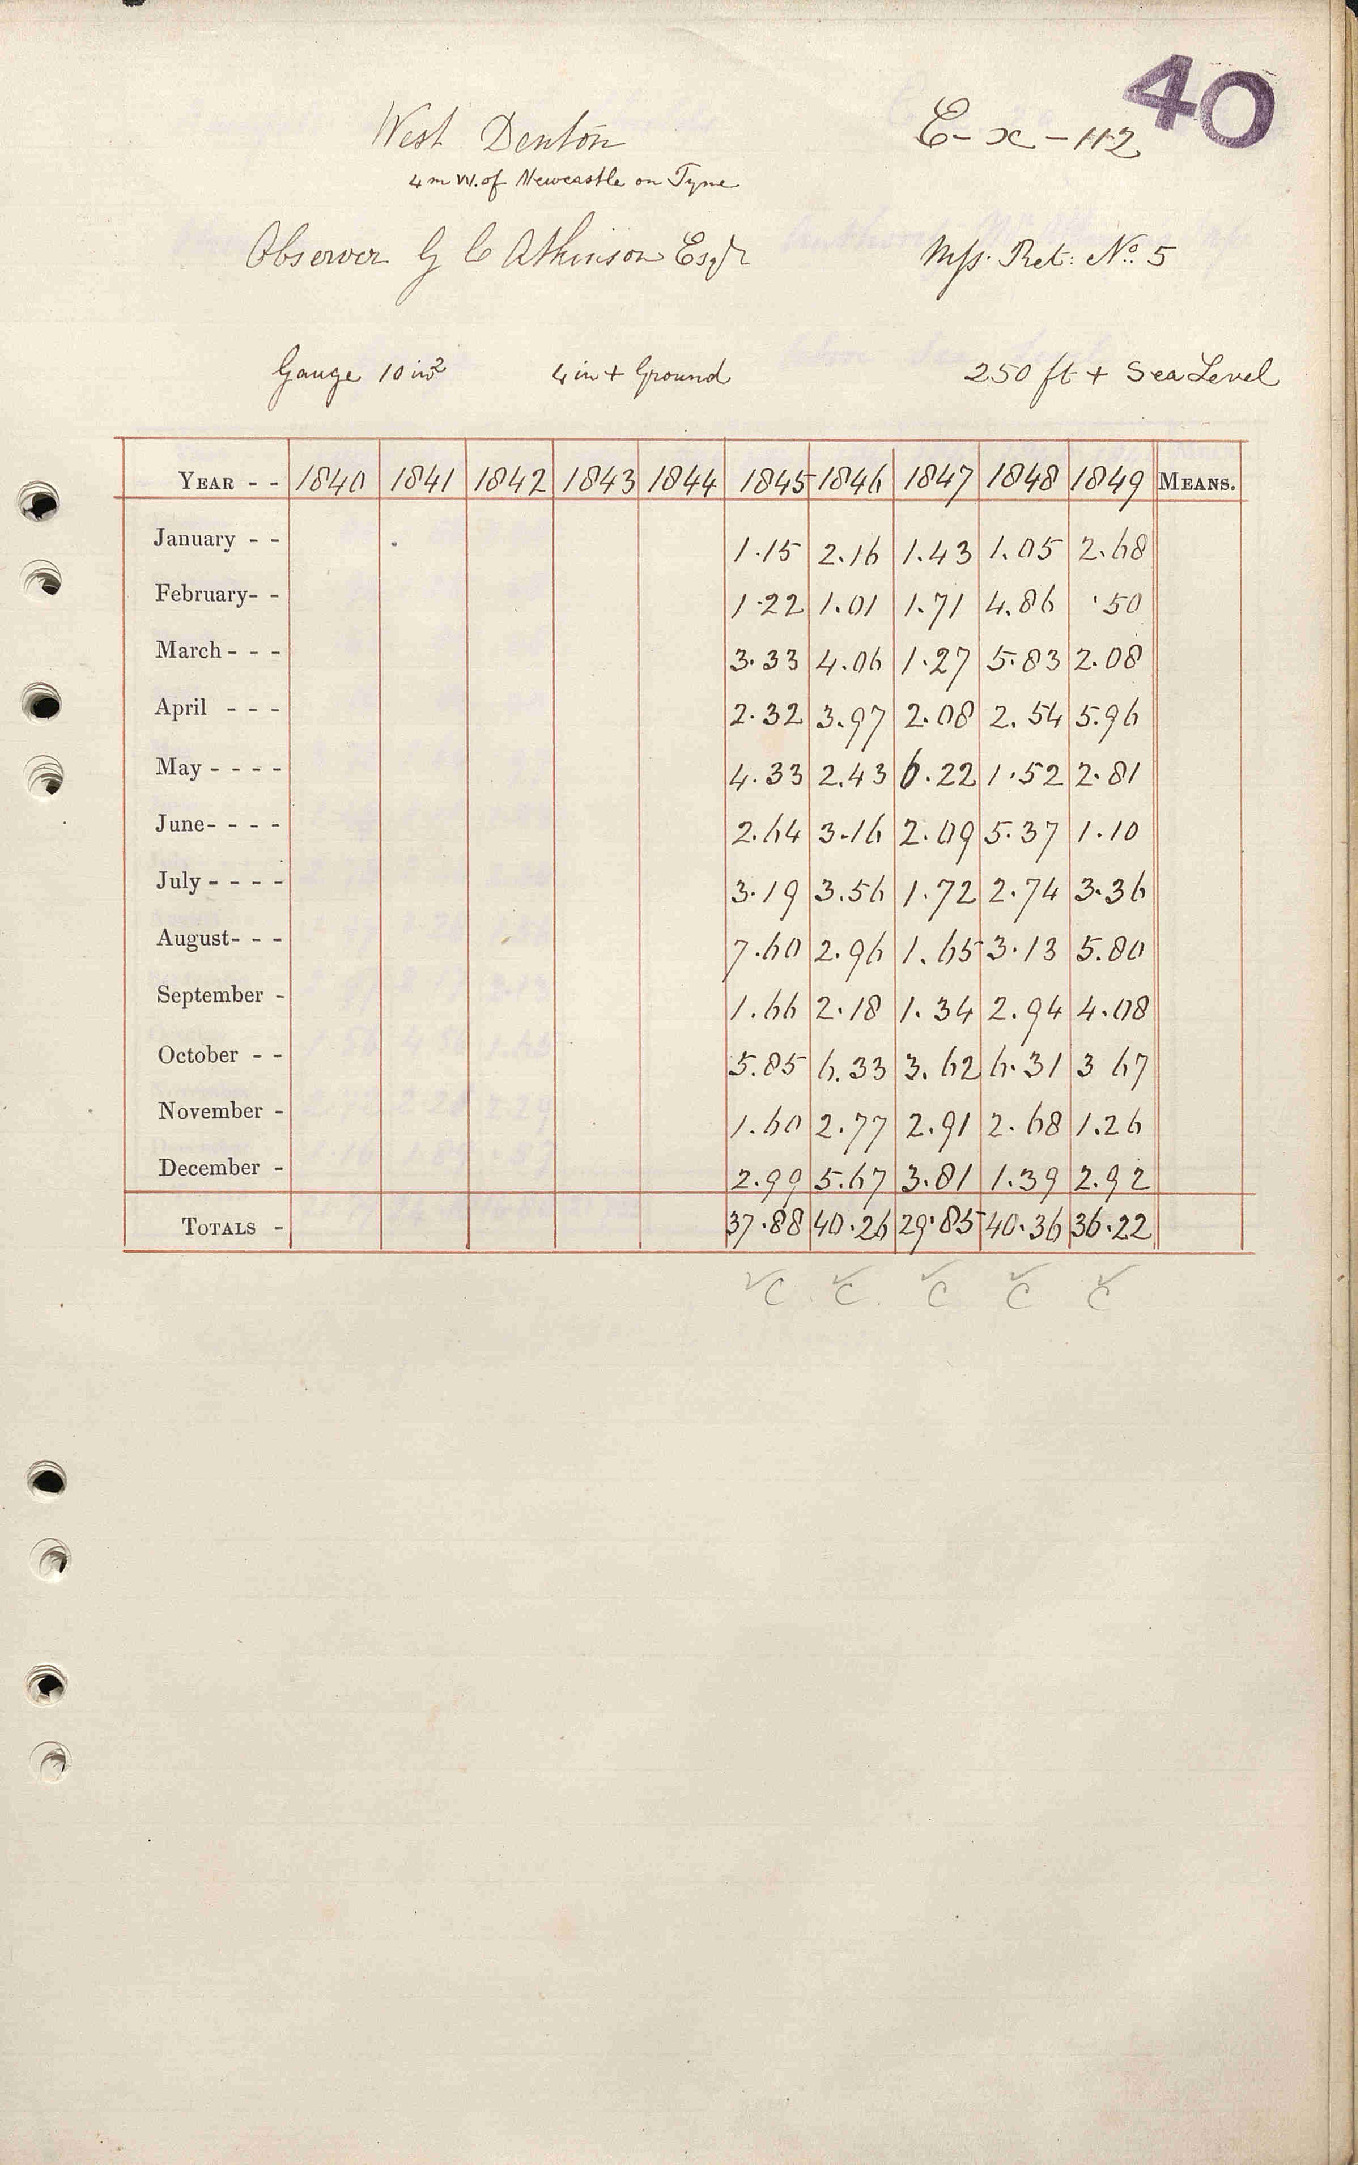 40
West Denton
E-x-112
4 m W. of Newcastle on Tyne
Observer G C Atkinson Esqr
Mss. Ret: No. 5
Gauge 10 in2 4 in + Ground 250 ft + Sea Level
YEAR - - 1840 1841 1842 1843 1844 1845 1846 1847 1848 1849 MEANS.
January - - 1.15 2.16 1.43 1.05 2.68
February- - 1.22 1.01 1.71 4.86 .50
March - - - 3.33 4.06 1.27 5.83 2.08
April - - - 2.32 3.97 2.08 2.54 5.96
May - - - - 4.33 2.43 6.22 1.52 2.81
June- - - - 2.64 3.16 2.09 5.37 1.10
July - - - - 3.19 3.56 1.72 2.74 3.36
August- - - 7.60 2.96 1.65 3.13 5.80
September - 1.66 2.18 1.34 2.94 4.08
October - - 5.85 6.33 3.62 6.31 3 67
November - 1.60 2.77 2.91 2.68 1.26
December - 2.99 5.67 3.81 1.39 2.92
TOTALS - 37.88 40.26 29.85 40.36 36.22
✓C ✓C ✓C ✓C ✓C